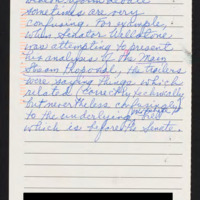 sometimes are very
confusing. For example,
when Senator Wellstone
was attempting to present
his analysis of the Main
Stream Proposal, the trailers
were saying things which
related (correctly technically
but nevertheless confusingly)
to the underlying bill
which is before the Senate.